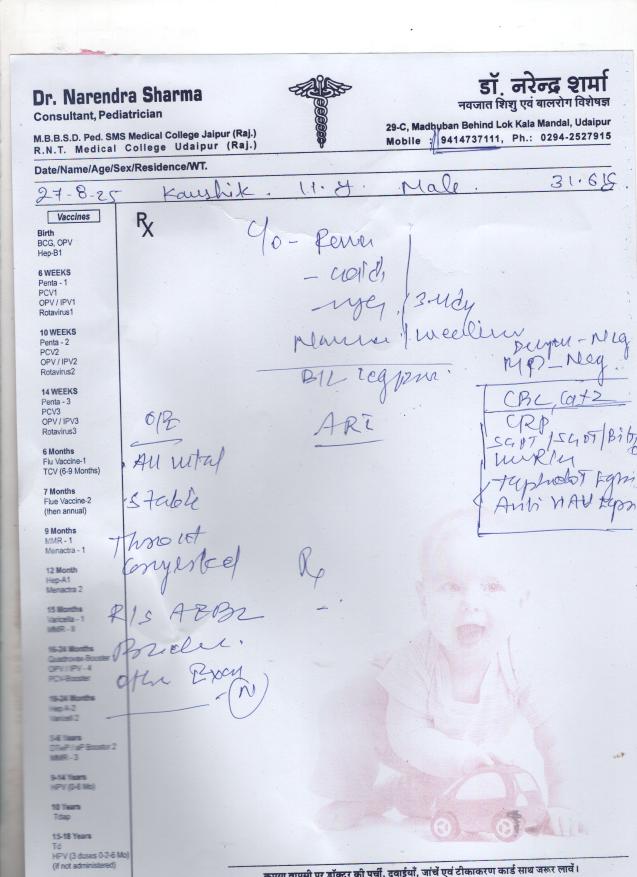 Dr. Narendra Sharma
Consultant, Pediatrician
M.B.B.S.D. Ped. SMS Medical College Jaipur (Raj.)
R.N.T. Medical College Udaipur (Raj.)
डॉ. नरेन्द्र शर्मा
नवजात शिशु एवं बालरोग विशेषज्ञ
29-C, Madhuban Behind Lok Kala Mandal, Udaipur
Mobile : 9414737111, Ph.: 0294-2527915
Date/Name/Age/Sex/Residence/WT.
27-8-25 Kaushik. 11. y. Male. 31.6
Vaccines
Birth
BCG, OPV
Hep-B1
6 WEEKS
Penta - 1
PCV1
OPV / IPV1
Rotavirus1
10 WEEKS
Penta - 2
PCV2
OPV / IPV2
Rotavirus2
14 WEEKS
Penta - 3
PCV3
OPV / IPV3
Rotavirus3
6 Months
Flu Vaccine-1
TCV (6-9 Months)
7 Months
Flue Vaccine-2
(then annual)
9 Months
MMR - 1
Menactra - 1
12 Month
Hep-A1
Menactra 2
15 Months
Varicella - 1
MMR - II
16-24 Months
Quadrovax-Booster
OPV / IPV - 4
PCV-Booster
Hep A-2
Varicell-2
5-6 Years
MMR - 3
9-14 Years
HPV (0-6 Mo)
10 Years
Tdap
15-18 Years
Td
HPV (3 doses 0-2-6 Mo)
(if not administered)
Rx
C/o -
- cold
3
- Neg
MP - Neg
CBC,
CRP
SGPT / SGOT /
Anti HAV
ARI
O/E
All vital
Stable
Throat
Congested
R/s AEBE
N
Rx
कृपया वापसी पर डॉक्टर की पर्ची, दवाईयाँ, जांचें एवं टीकाकरण कार्ड साथ जरूर लावें।